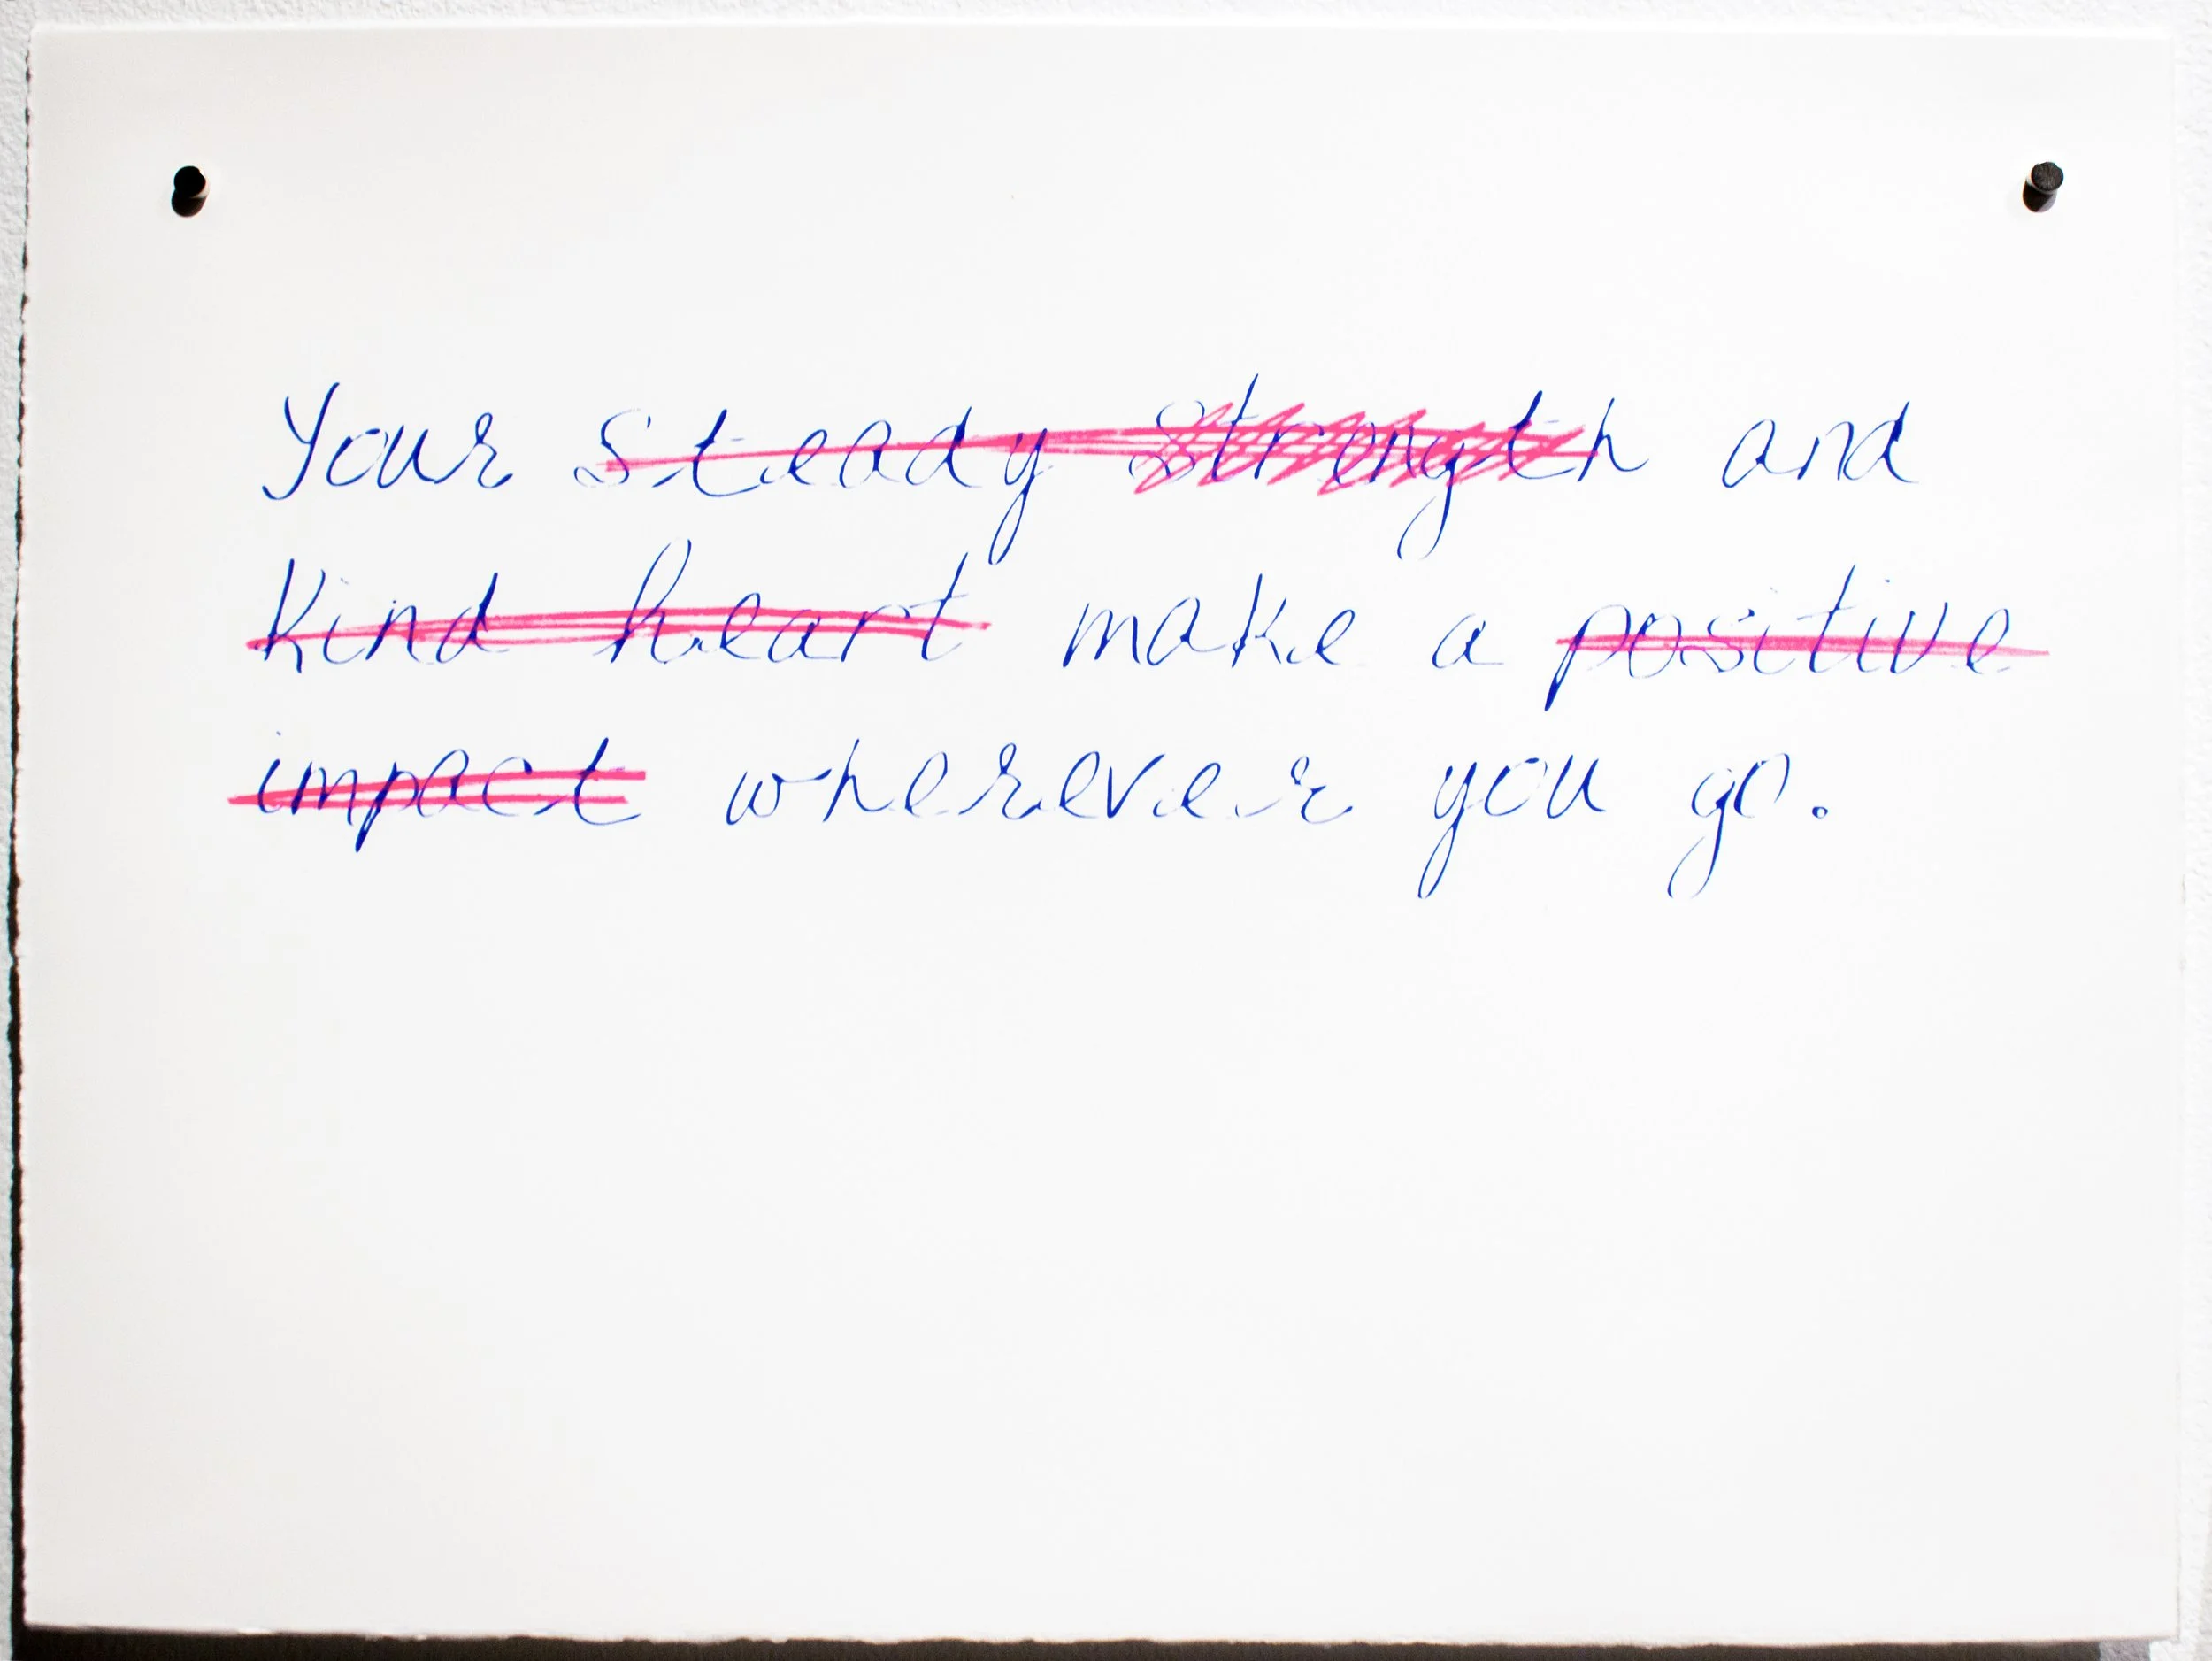 Your steady strength and
Kind heart make a positive
impact wherever you go.